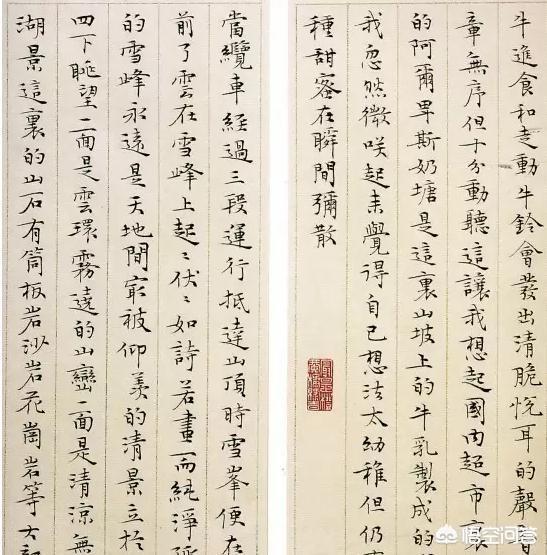 牛進食和走動牛鈴會發出清脆悅耳的聲音
章無序但十分動聽這讓我想起國内超市裏
的阿爾卑斯奶塘是這裏山坡上的牛乳製成的
我忽然微咲起来覺得自己想法太幼稚但仍
種甜密在瞬間彌散
當纜車經過三段運行抵達山頂時雪峯便在
前了雲在雪峰上起〻伏〻如詩若畫而純淨
的雪峰永遠是天地間最被仰羨的清景立於
四下眺望一面是雲環霧遶的山巒一面是清涼無
湖景這裏的山石有筒板岩沙岩花崗岩等大
悟空问答